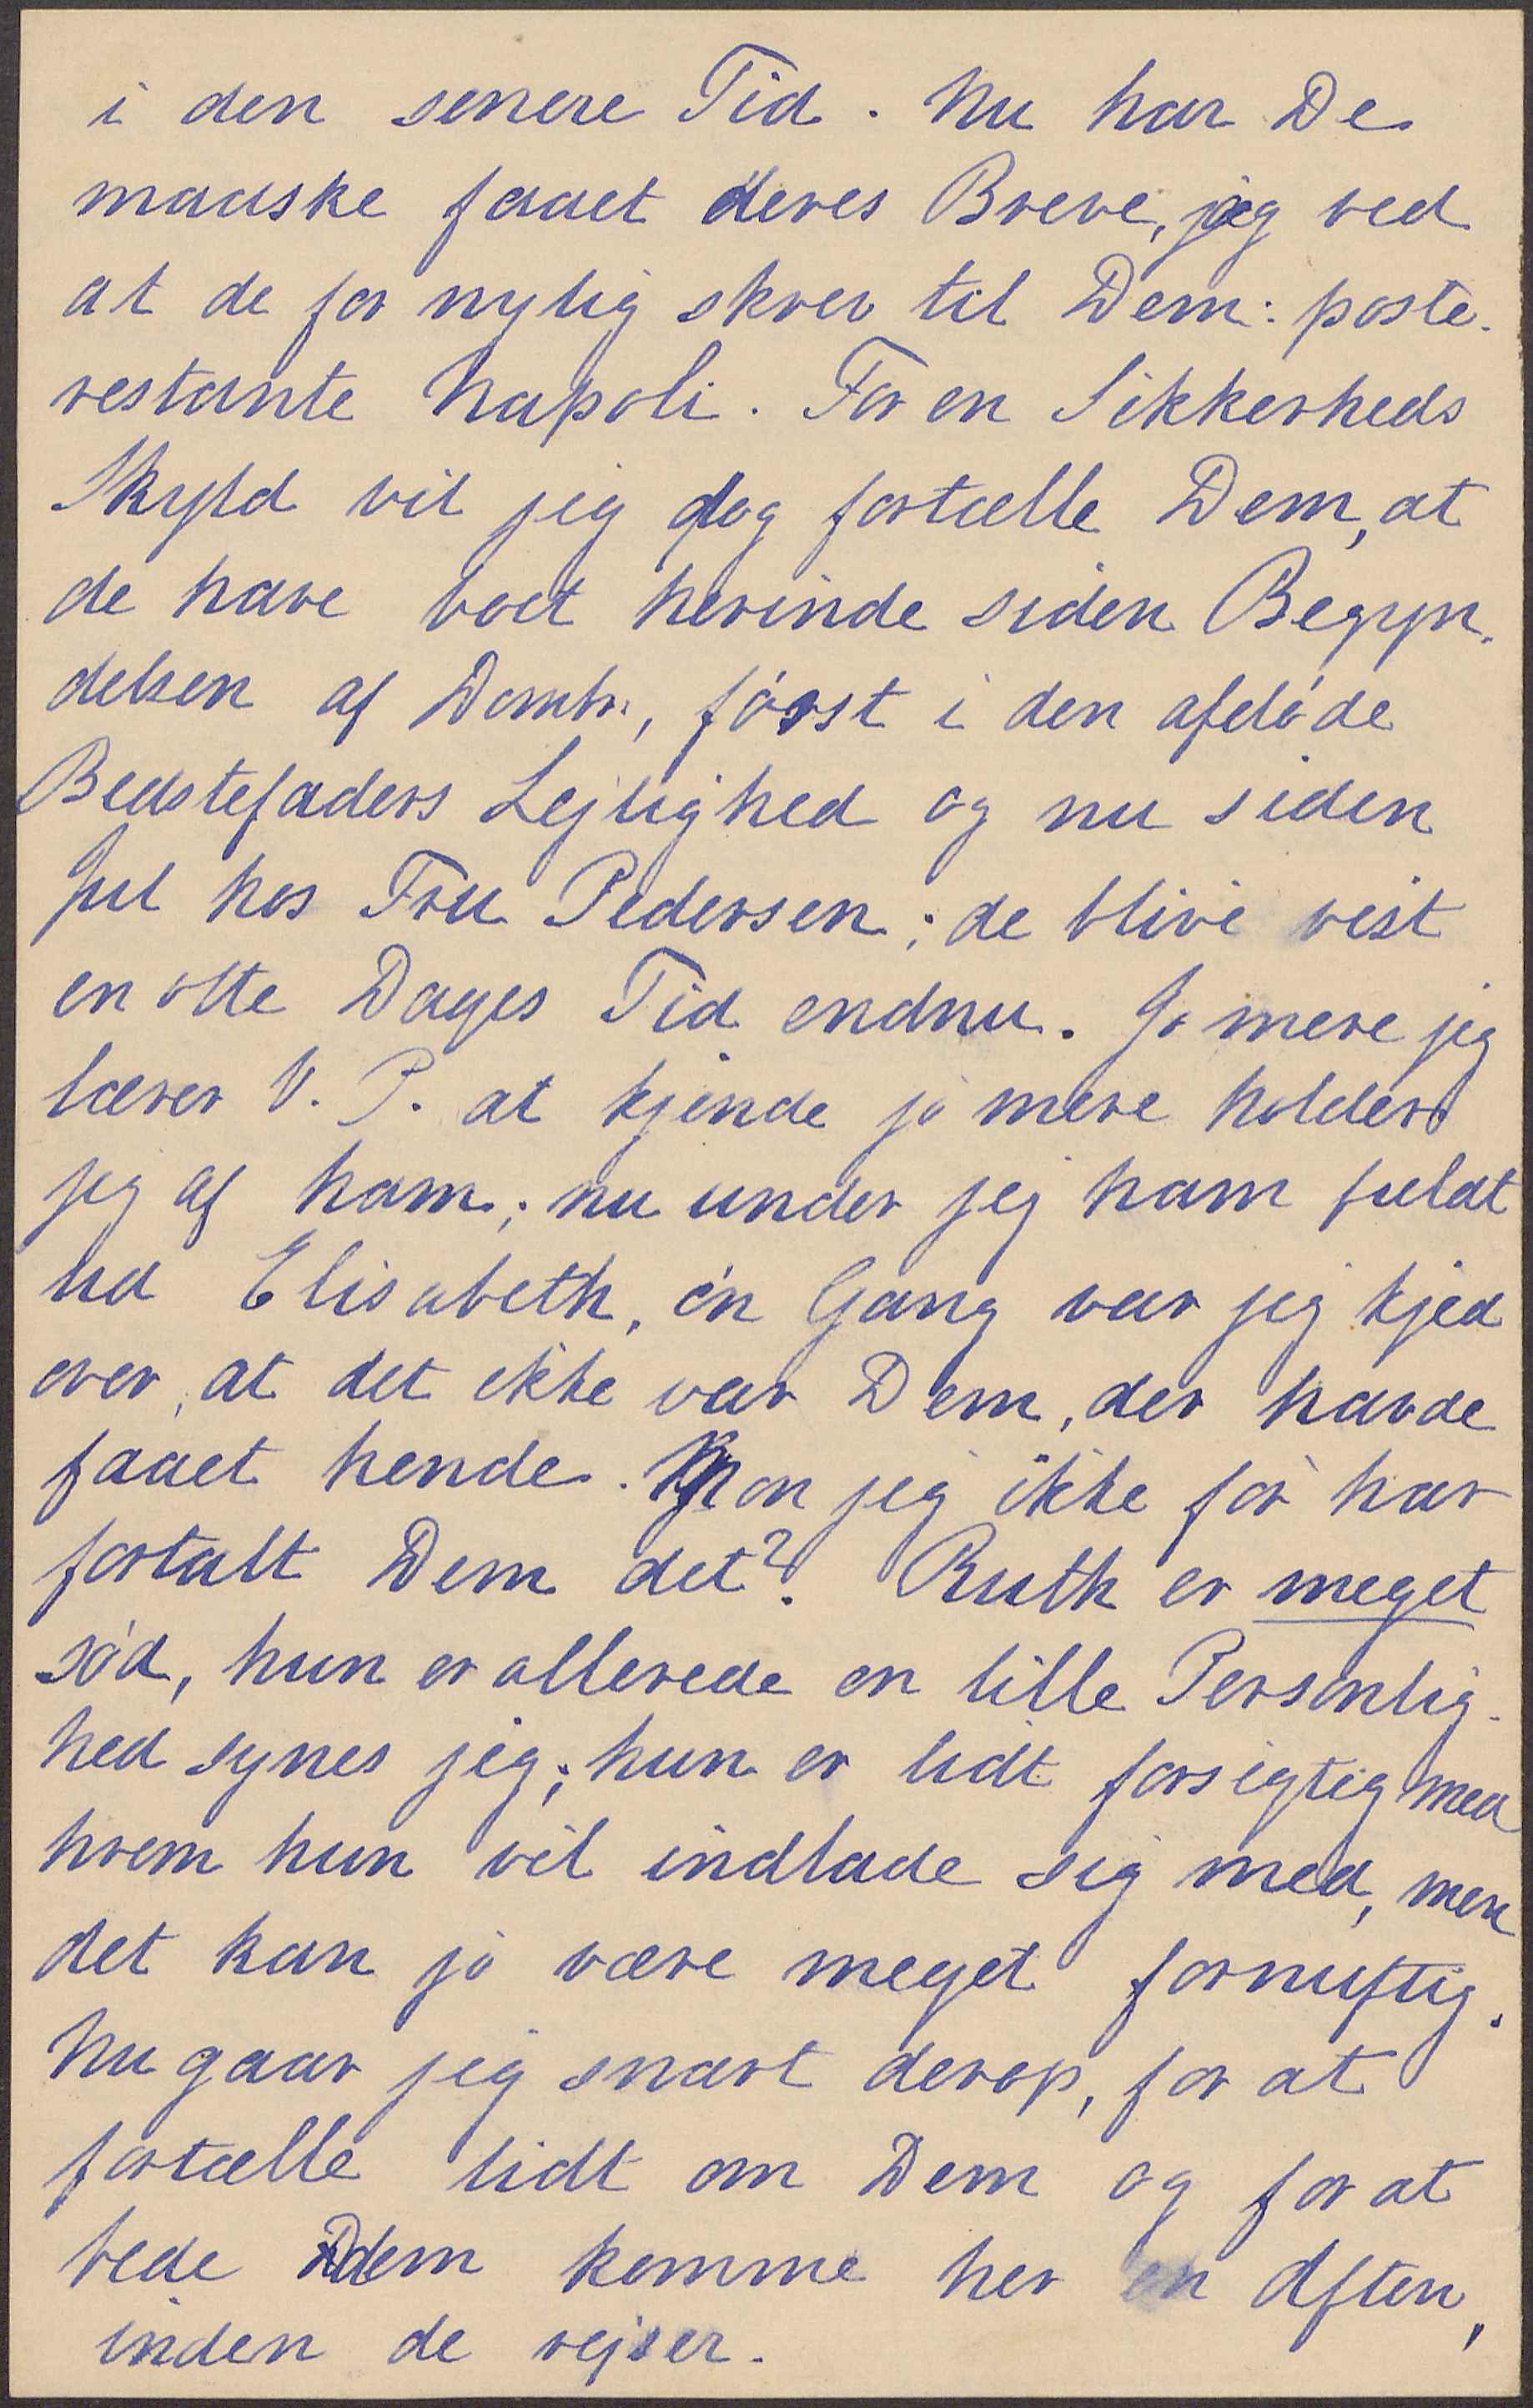 i den senere Tid. Nu har De
maaske faaet deres Breve, jeg ved
at de for nylig skrev til Dem: poste-
restante Napoli. For en Sikkerheds
Skyld vil jeg dog fortælle Dem, at
de have boet herinde siden Begyn-
delsen af Decmbr., først i den afdøde
Bedstefaders Lejlighed og nu siden
Jul hos Fru Pedersen; de blive vist
en otte Dages Tid endnu. Jo mere jeg
lærer V. P. at kjende jo mere holder
jeg af ham; nu under jeg ham fuldt
ud Elisabeth, én Gang var jeg kjed
over, at det ikke var Dem, der havde
faaet hende. Mon jeg ikke før har
fortalt Dem det? Ruth er meget
sød, hun er allerede en lille Personlig-
hed synes jeg; hun er lidt forsigtig med
hvem hun vil indlade sig med, men
det kan jo være meget fornuftig.
Nu gaar jeg snart derop, for at
fortælle lidt om Dem og for at
bede dem komme her en Aften,
inden de rejser.